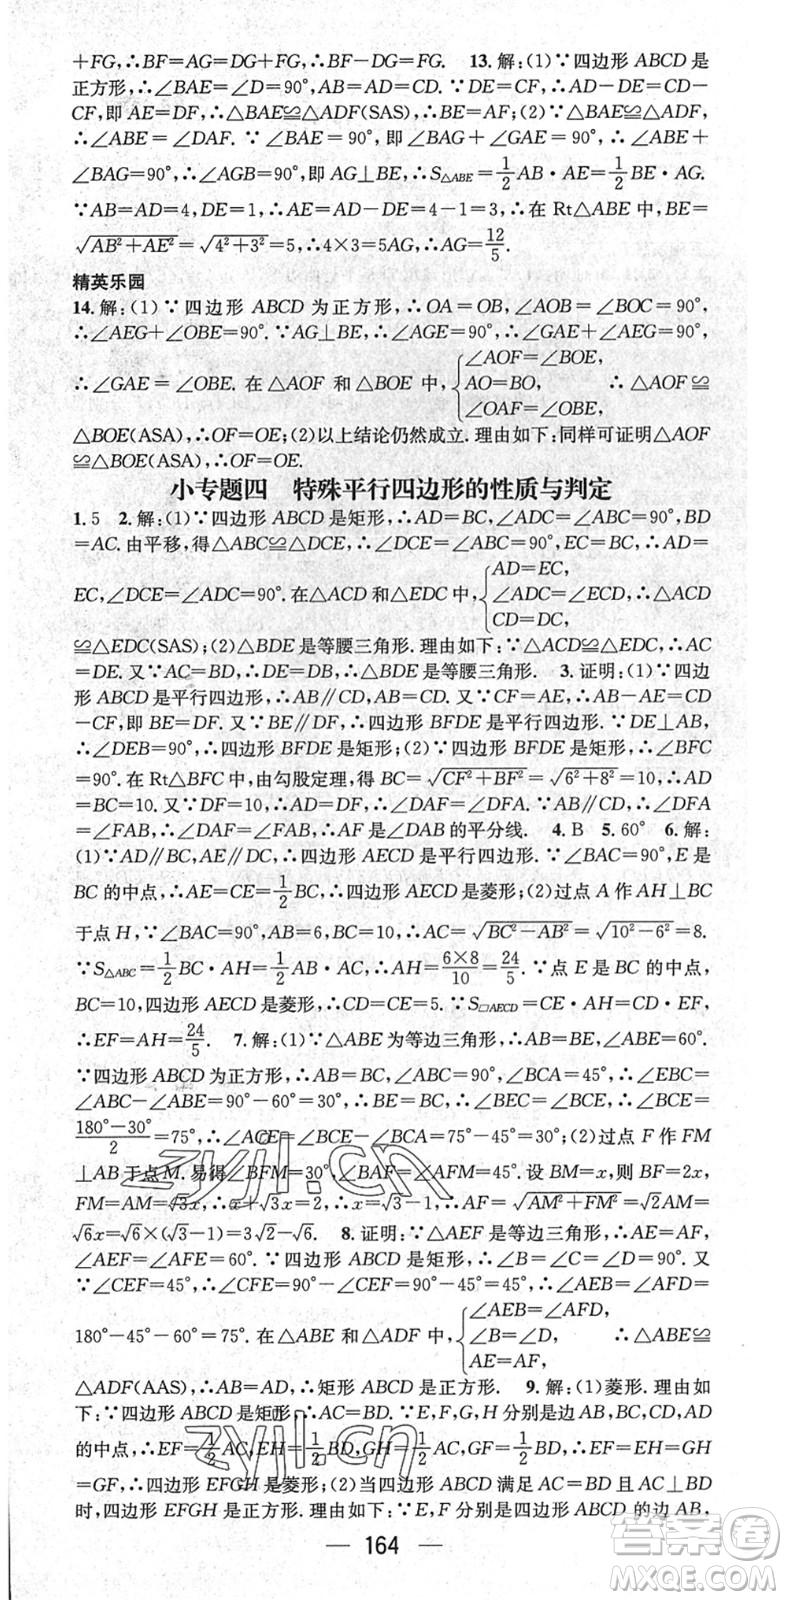 +FG,∴BF=AG=DG+FG,∴BF-DG=FG. 13.解:(1)∵四边形ABCD是
正方形,∴∠BAE=∠D=90°,AB=AD=CD.∵DE=CF,∴AD-DE=CD-
CF,即AE=DF,∴△BAE≌△ADF(SAS),∴BE=AF;(2)∵△BAE≌△ADF,
∴∠ABE=∠DAF.∵∠BAE=90°,即∠BAG+∠GAE=90°,∴∠ABE+
∠BAG=90°,∴∠AGB=90°,即AG⊥BE,∴S△ABE=1/2AB·AE=1/2BE·AG.
∵AB=AD=4,DE=1,∴AE=AD-DE=4-1=3,∴在Rt△ABE中,BE=
√(AB²+AE²)=√(4²+3²)=5,∴4×3=5AG,∴AG=12/5.
精英乐园
14.解:(1)∵四边形ABCD为正方形,∴OA=OB,∠AOB=∠BOC=90°,
∴∠AEG+∠OBE=90°.∵AG⊥BE,∴∠AGE=90°,∴∠GAE+∠AEG=90°,
∴∠GAE=∠OBE.在△AOF和△BOE中,{∠AOF=∠BOE,AO=BO,∠OAF=∠OBE, ∴△AOF≌
△BOE(ASA),∴OF=OE;(2)以上结论仍然成立.理由如下:同样可证明△AOF
≌△BOE(ASA),∴OF=OE.
小专题四 特殊平行四边形的性质与判定
1.5 2.解:(1)∵四边形ABCD是矩形,∴AD=BC,∠ADC=∠ABC=90°,BD
=AC.由平移,得△ABC≌△DCE,∴∠DCE=∠ABC=90°,EC=BC,∴AD=
EC,∠DCE=∠ADC=90°.在△ACD和△EDC中,{AD=EC,∠ADC=∠ECD,CD=DC, ∴△ACD
≌△EDC(SAS);(2)△BDE是等腰三角形.理由如下:∵△ACD≌△EDC,∴AC
=DE.又∵AC=BD,∴DE=DB,∴△BDE是等腰三角形. 3.证明:(1)∵四边
形ABCD是平行四边形,∴AB∥CD,AB=CD.又∵CF=AE,∴AB-AE=CD
-CF,即BE=DF.又∵BE∥DF,∴四边形BFDE是平行四边形.∵DE⊥AB,
∴∠DEB=90°,∴四边形BFDE是矩形;(2)∵四边形BFDE是矩形,∴∠BFC
=90°.在Rt△BFC中,由勾股定理,得BC=√(CF²+BF²)=√(6²+8²)=10,∴AD
=BC=10.又∵DF=10,∴AD=DF,∴∠DAF=∠DFA.∵AB∥CD,∴∠DFA
=∠FAB,∴∠DAF=∠FAB,∴AF是∠DAB的平分线. 4.B 5.60° 6.解:
(1)∵AD∥BC,AE∥DC,∴四边形AECD是平行四边形.∵∠BAC=90°,E是
BC的中点,∴AE=CE=1/2BC,∴四边形AECD是菱形;(2)过点A作AH⊥BC
于点H,∵∠BAC=90°,AB=6,BC=10,∴AC=√(BC²-AB²)=√(10²-6²)=8.
∵S△ABC=1/2BC·AH=1/2AB·AC,∴AH=6×8/10=24/5.∵点E是BC的中点,
BC=10,四边形AECD是菱形,∴CD=CE=5.∵S□AECD=CE·AH=CD·EF,
∴EF=AH=24/5. 7.解:(1)∵△ABE为等边三角形,∴AB=BE,∠ABE=60°.
∵四边形ABCD为正方形,∴AB=BC,∠ABC=90°,∠BCA=45°,∴∠EBC=
∠ABC-∠ABE=90°-60°=30°,BE=BC,∴∠BEC=∠BCE,∴∠BCE=
(180°-30°)/2=75°,∴∠ACE=∠BCE-∠BCA=75°-45°=30°;(2)过点F作FM
⊥AB于点M.易得∠BFM=30°,∠BAF=∠AFM=45°.设BM=x,则BF=2x,
FM=AM=√3x,∴x+√3x=2,∴x=√3-1,∴AF=√(AM²+FM²)=√2AM=
√6x=√6×(√3-1)=3√2-√6. 8.证明:∵△AEF是等边三角形,∴AE=AF,
∠AEF=∠AFE=60°.∵四边形ABCD是矩形,∴∠B=∠C=∠D=90°.又
∵∠CEF=45°,∴∠CFE=90°-∠CEF=90°-45°=45°,∴∠AEB=∠AFD=
180°-45°-60°=75°.在△ABE和△ADF中,{∠AEB=∠AFD,∠B=∠D,AE=AF, ∴△ABE≌
△ADF(AAS),∴AB=AD,∴矩形ABCD是正方形. 9.解:(1)菱形.理由如
下:∵四边形ABCD是矩形,∴AC=BD.∵E,F,G,H分别是边AB,BC,CD,AD
的中点,∴EF=1/2AC,EH=1/2BD,GH=1/2AC,GF=1/2BD,∴EF=EH=GH
=GF,∴四边形EFGH是菱形;(2)当四边形ABCD满足AC=BD且AC⊥BD
时,四边形EFGH是正方形.理由如下:∵E,F分别是四边形ABCD的边AB,
164
zyjl.cn
zyjl.cn
答案卷
MXQE.COM